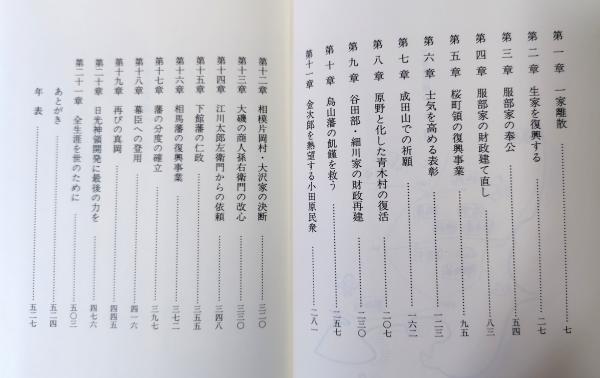 第一章 一家離散 ……… 七
第二章 生家を復興する ……… 二七
第三章 服部家の奉公 ……… 五四
第四章 服部家の財政建て直し ……… 八三
第五章 桜町領の復興事業 ……… 九五
第六章 士気を高める表彰 ……… 一二三
第七章 成田山での祈願 ……… 一六二
第八章 原野と化した青木村の復活 ……… 二〇七
第九章 谷田部・細川家の財政再建 ……… 二三六
第十章 烏山藩の飢饉を救う ……… 二五七
第十一章 金次郎を熱望する小田原民衆 ……… 二八一
第十二章 相模片岡村・大沢家の決断 ……… 三二〇
第十三章 大磯の商人孫右衛門の改心 ……… 三三〇
第十四章 江川太郎左衛門からの依頼 ……… 三四八
第十五章 下館藩の仁政 ……… 三五五
第十六章 相馬藩の復興事業 ……… 三七二
第十七章 藩の分度の確立 ……… 三九七
第十八章 幕臣への登用 ……… 四一六
第十九章 再びの真岡 ……… 四四五
第二十章 日光神領開発に最後の力を ……… 四七六
第二十一章 全生涯を世のために ……… 五〇三
あとがき ……… 五二四
年表 ……… 五二七